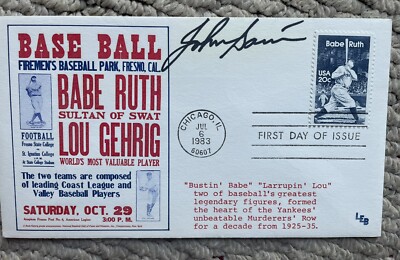 BASE BALL
FIREMEN'S BASEBALL PARK, FRESNO, CAL.
BABE RUTH
SULTAN OF SWAT
LOU GEHRIG
WORLD'S MOST VALUABLE PLAYER
FOOTBALL
Fresno State College
vs.
St. Ignatius College
at State College Stadium
The two teams are composed
of leading Coast League and
Valley Baseball Players
SATURDAY, OCT. 29
3:00 P. M.
John
Babe Ruth
USA
20c
CHICAGO, IL
JUL
6
1983
60607
FIRST DAY OF ISSUE
"Bustin' Babe" "Larrupin' Lou"
two of baseball's greatest
legendary figures, formed
the heart of the Yankees'
unbeatable Murderers' Row
for a decade from 1925-35.
LEB